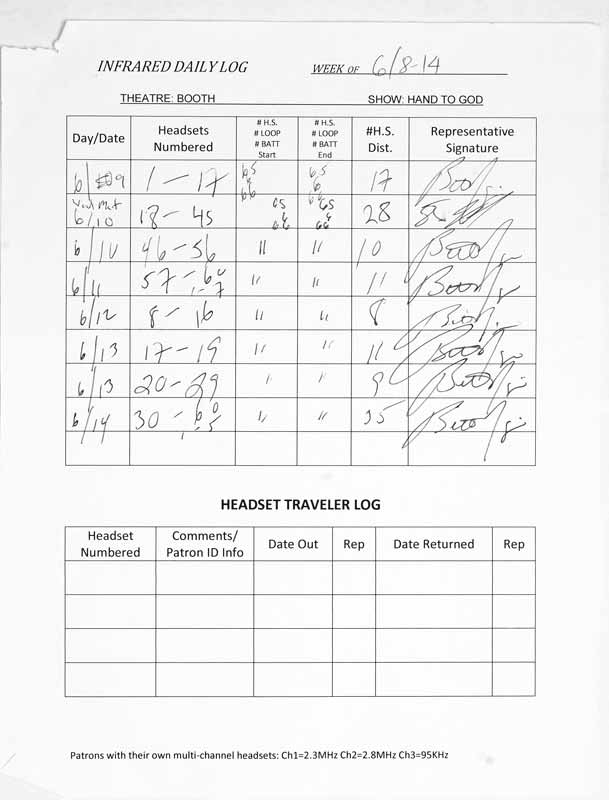 INFRARED DAILY LOG WEEK OF 6/8-14
THEATRE: BOOTH SHOW: HAND TO GOD
Day/Date Headsets Numbered # H.S. # LOOP # BATT Start # H.S. # LOOP # BATT End #H.S. Dist. Representative Signature
6/ 9 1 - 17 65 6 66 65 6 66 17
Wed Mat 6/10 18 - 45 65 6 66 65 6 66 28
6/10 46 - 56 " " 10
6/11 57 - 60 1-7 " " 11
6/12 8 - 16 " " 8
6/13 17 - 19 " " 11
6/13 20 - 29 " " 9
6/14 30 - 60 1-5 " " 35
HEADSET TRAVELER LOG
Headset Numbered Comments/ Patron ID Info Date Out Rep Date Returned Rep
Patrons with their own multi-channel headsets: Ch1=2.3MHz Ch2=2.8MHz Ch3=95KHz